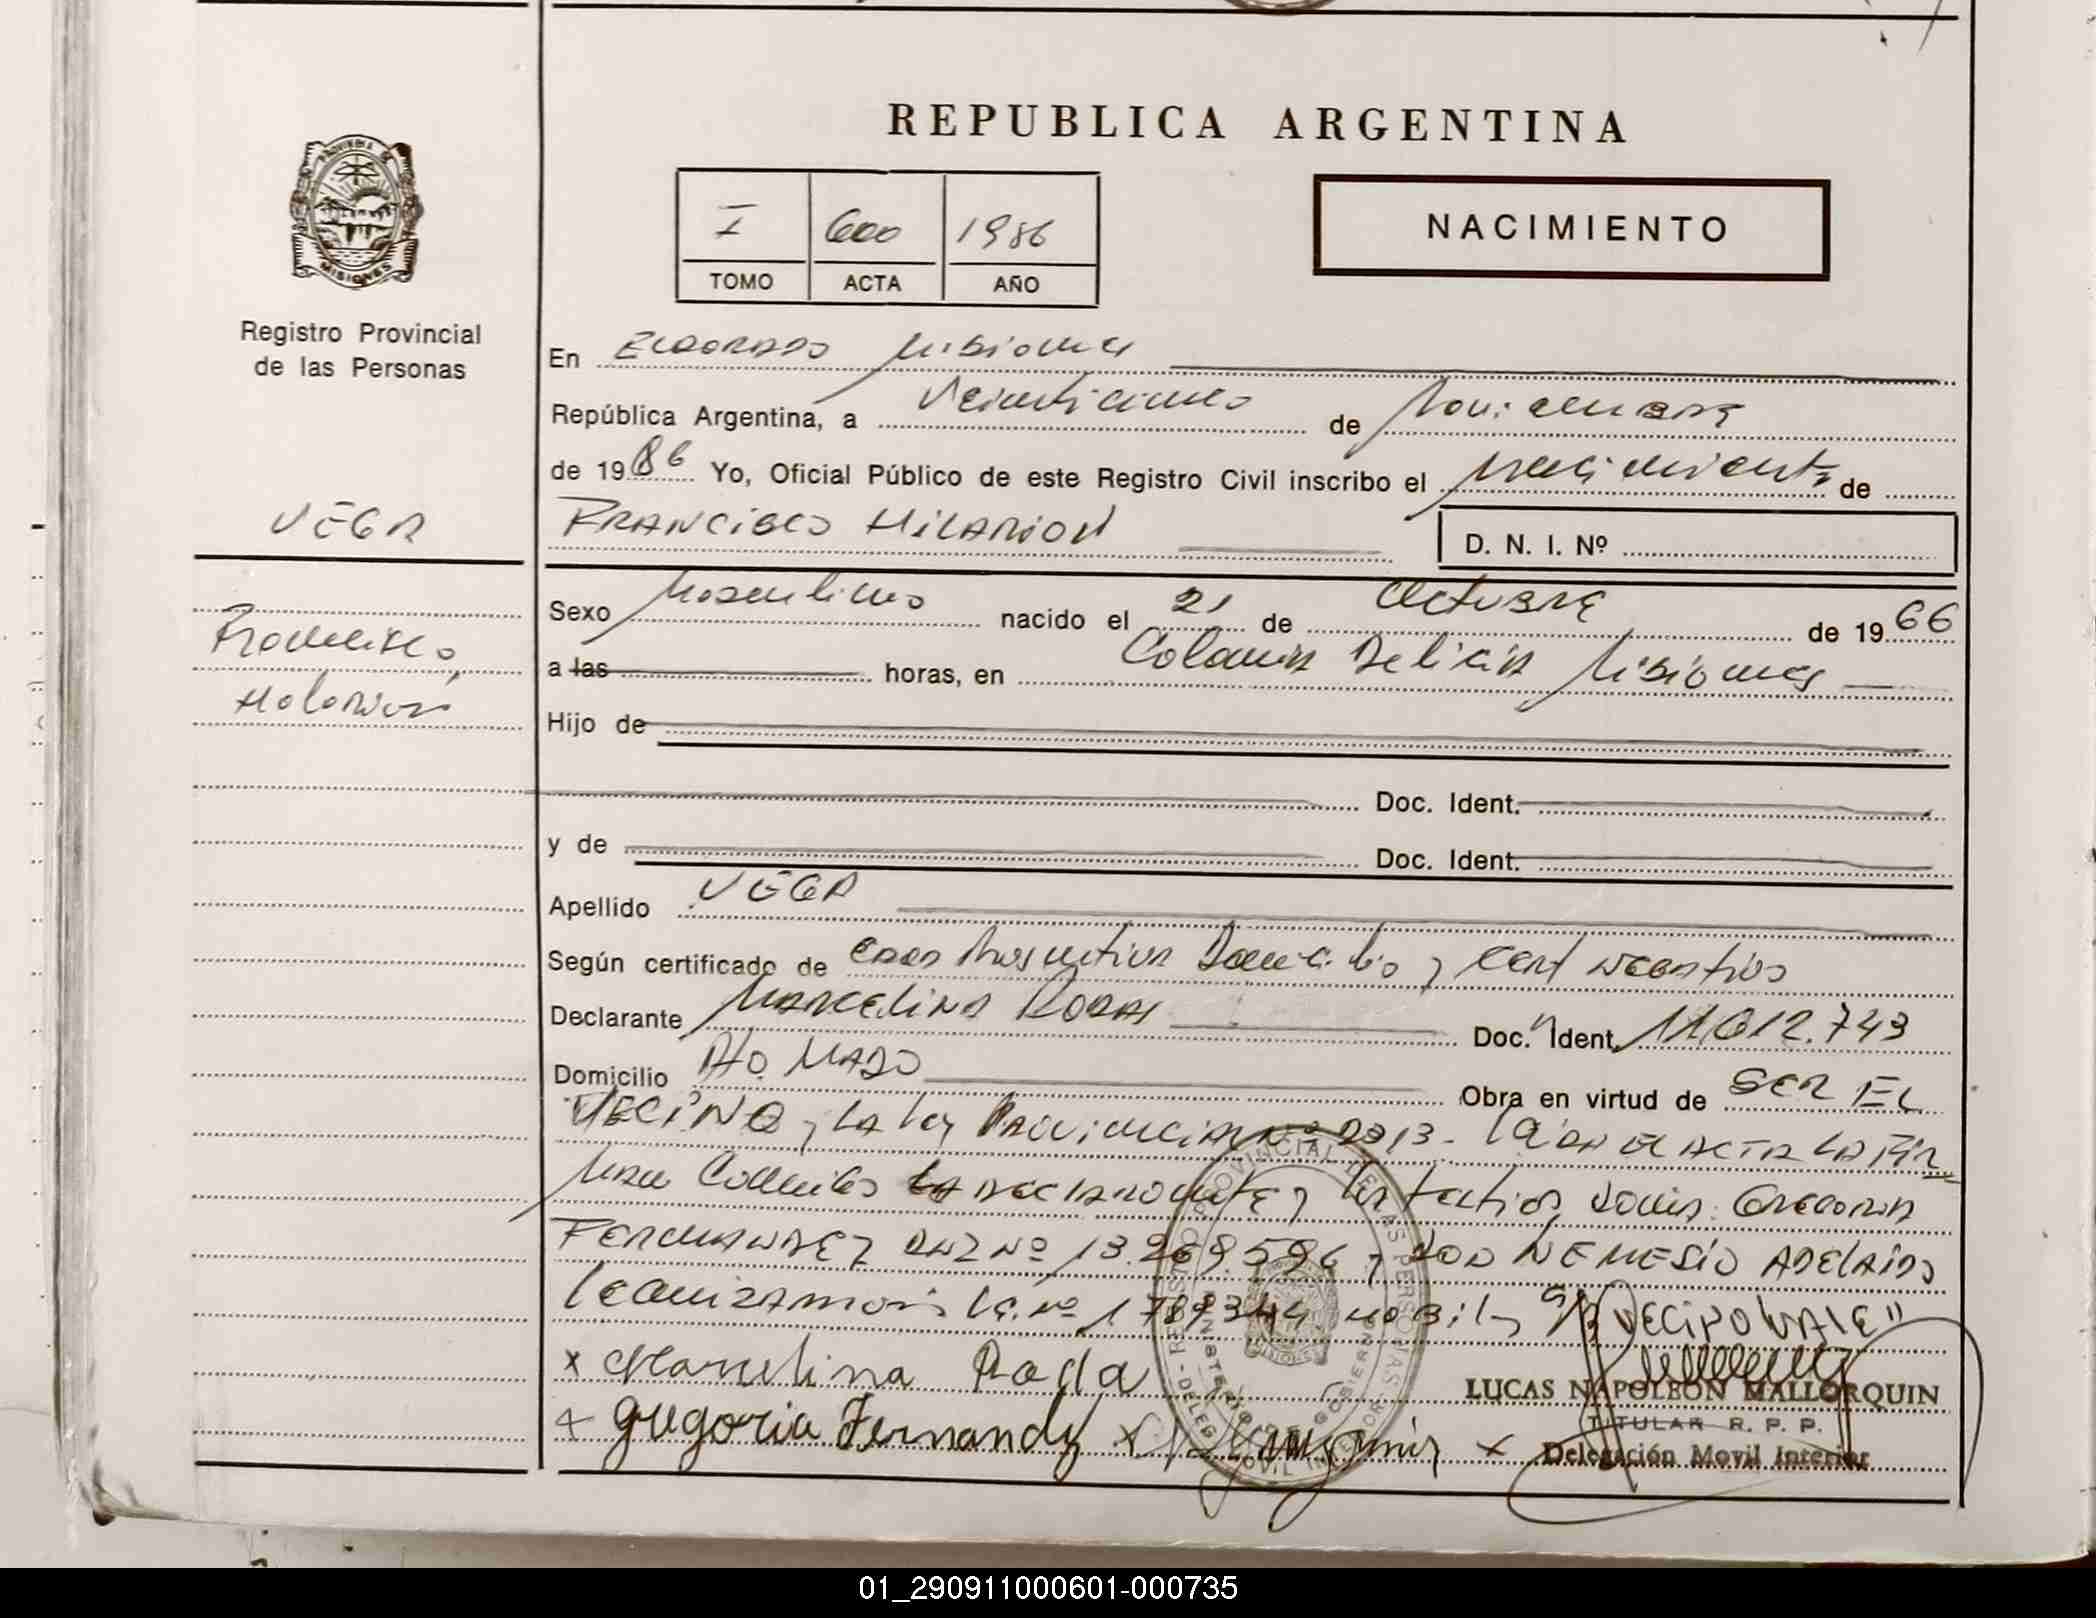 REPUBLICA ARGENTINA
PROVINCIA DE
MISIONES
I 600 1986
TOMO ACTA AÑO
NACIMIENTO
Registro Provincial
de las Personas
En ELDORADO Misiones
República Argentina, a Veinticinco de Noviembre
de 1986 Yo, Oficial Público de este Registro Civil inscribo el nacimiento de
VEGA
FRANCISCO HILARION
D. N. I. Nº
Francisco
Hilarion
Sexo Masculino nacido el 21 de Octubre de 1966
a las horas, en Colonia Delicia Misiones
Hijo de
Doc. Ident.
y de Doc. Ident.
Apellido VEGA
Según certificado de y Cert negativo
Declarante MARCELINA RODAS Doc. Ident. 11.612.743
Domicilio Pto. MADO Obra en virtud de SER EL
VECINO y LA Ley Provincial Nº 2313. LEIDA EL ACTA LA FIR
MAN Conmigo LA DECLARANTE y los testigos Doña: GREGORIA
FERNANDEZ DNI Nº 13.269.596 y DON NEMESIO ADELAIDO
LEGUIZAMON L.E. Nº 1789344 "VECINO VALE"
x Marcelina Roda
x gregoria Fernandez x x
REGISTRO PROVINCIAL DE LAS PERSONAS
MINISTERIO GOBIERNO
MISIONES
DELEG MOVIL INTERIOR
LUCAS NAPOLEON MALLORQUIN
TITULAR R. P. P.
Delegación Movil Interior
01_290911000601-000735